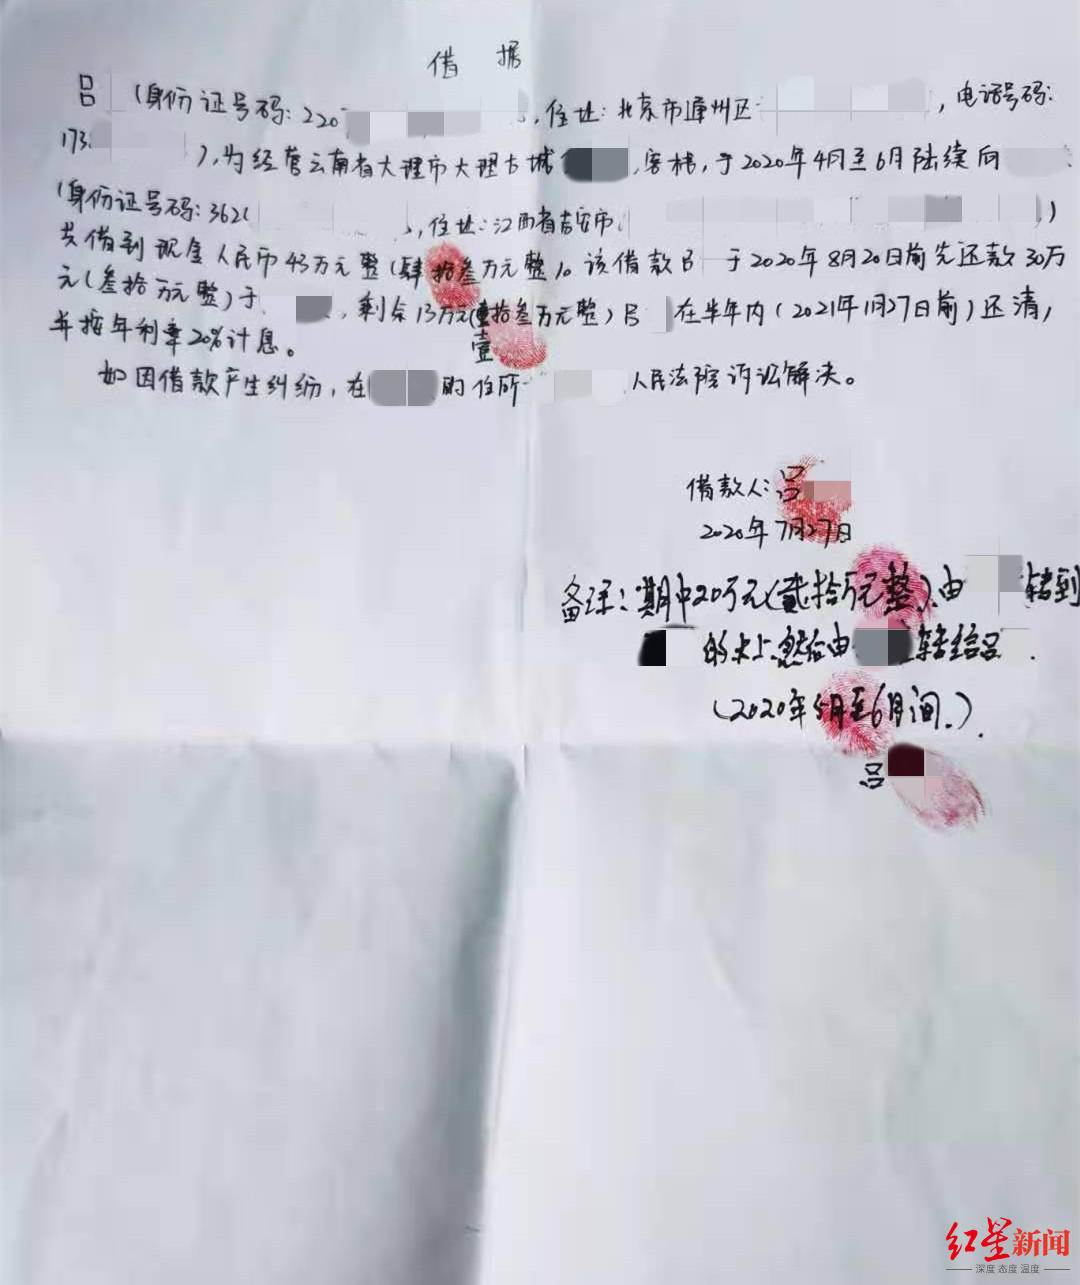 借 据
吕 (身份证号码:220 ,住址:北京市通州区 ,电话号码:
173 ),为经营云南省大理市大理古城 ,客栈,于2020年4月至6月陆续向
(身份证号码:362 ,住址:江西省吉安市 )
共借到现金人民币43万元整(肆拾叁万元整)。该借款吕 于2020年8月20日前先还款30万
元(叁拾万元整)于 ,剩余13万元(壹拾叁万元整)吕 在半年内(2021年1月27日前)还清,
壹
并按年利率20%计息。
如因借款产生纠纷,在 的住所 人民法院诉讼解决。
借款人:吕
2020年7月27日
备注:期中20万元(贰拾万元整).由 转到
的卡上.然后由 转给吕 .
(2020年5月至6月间.).
吕
红星新闻
深度 态度 温度